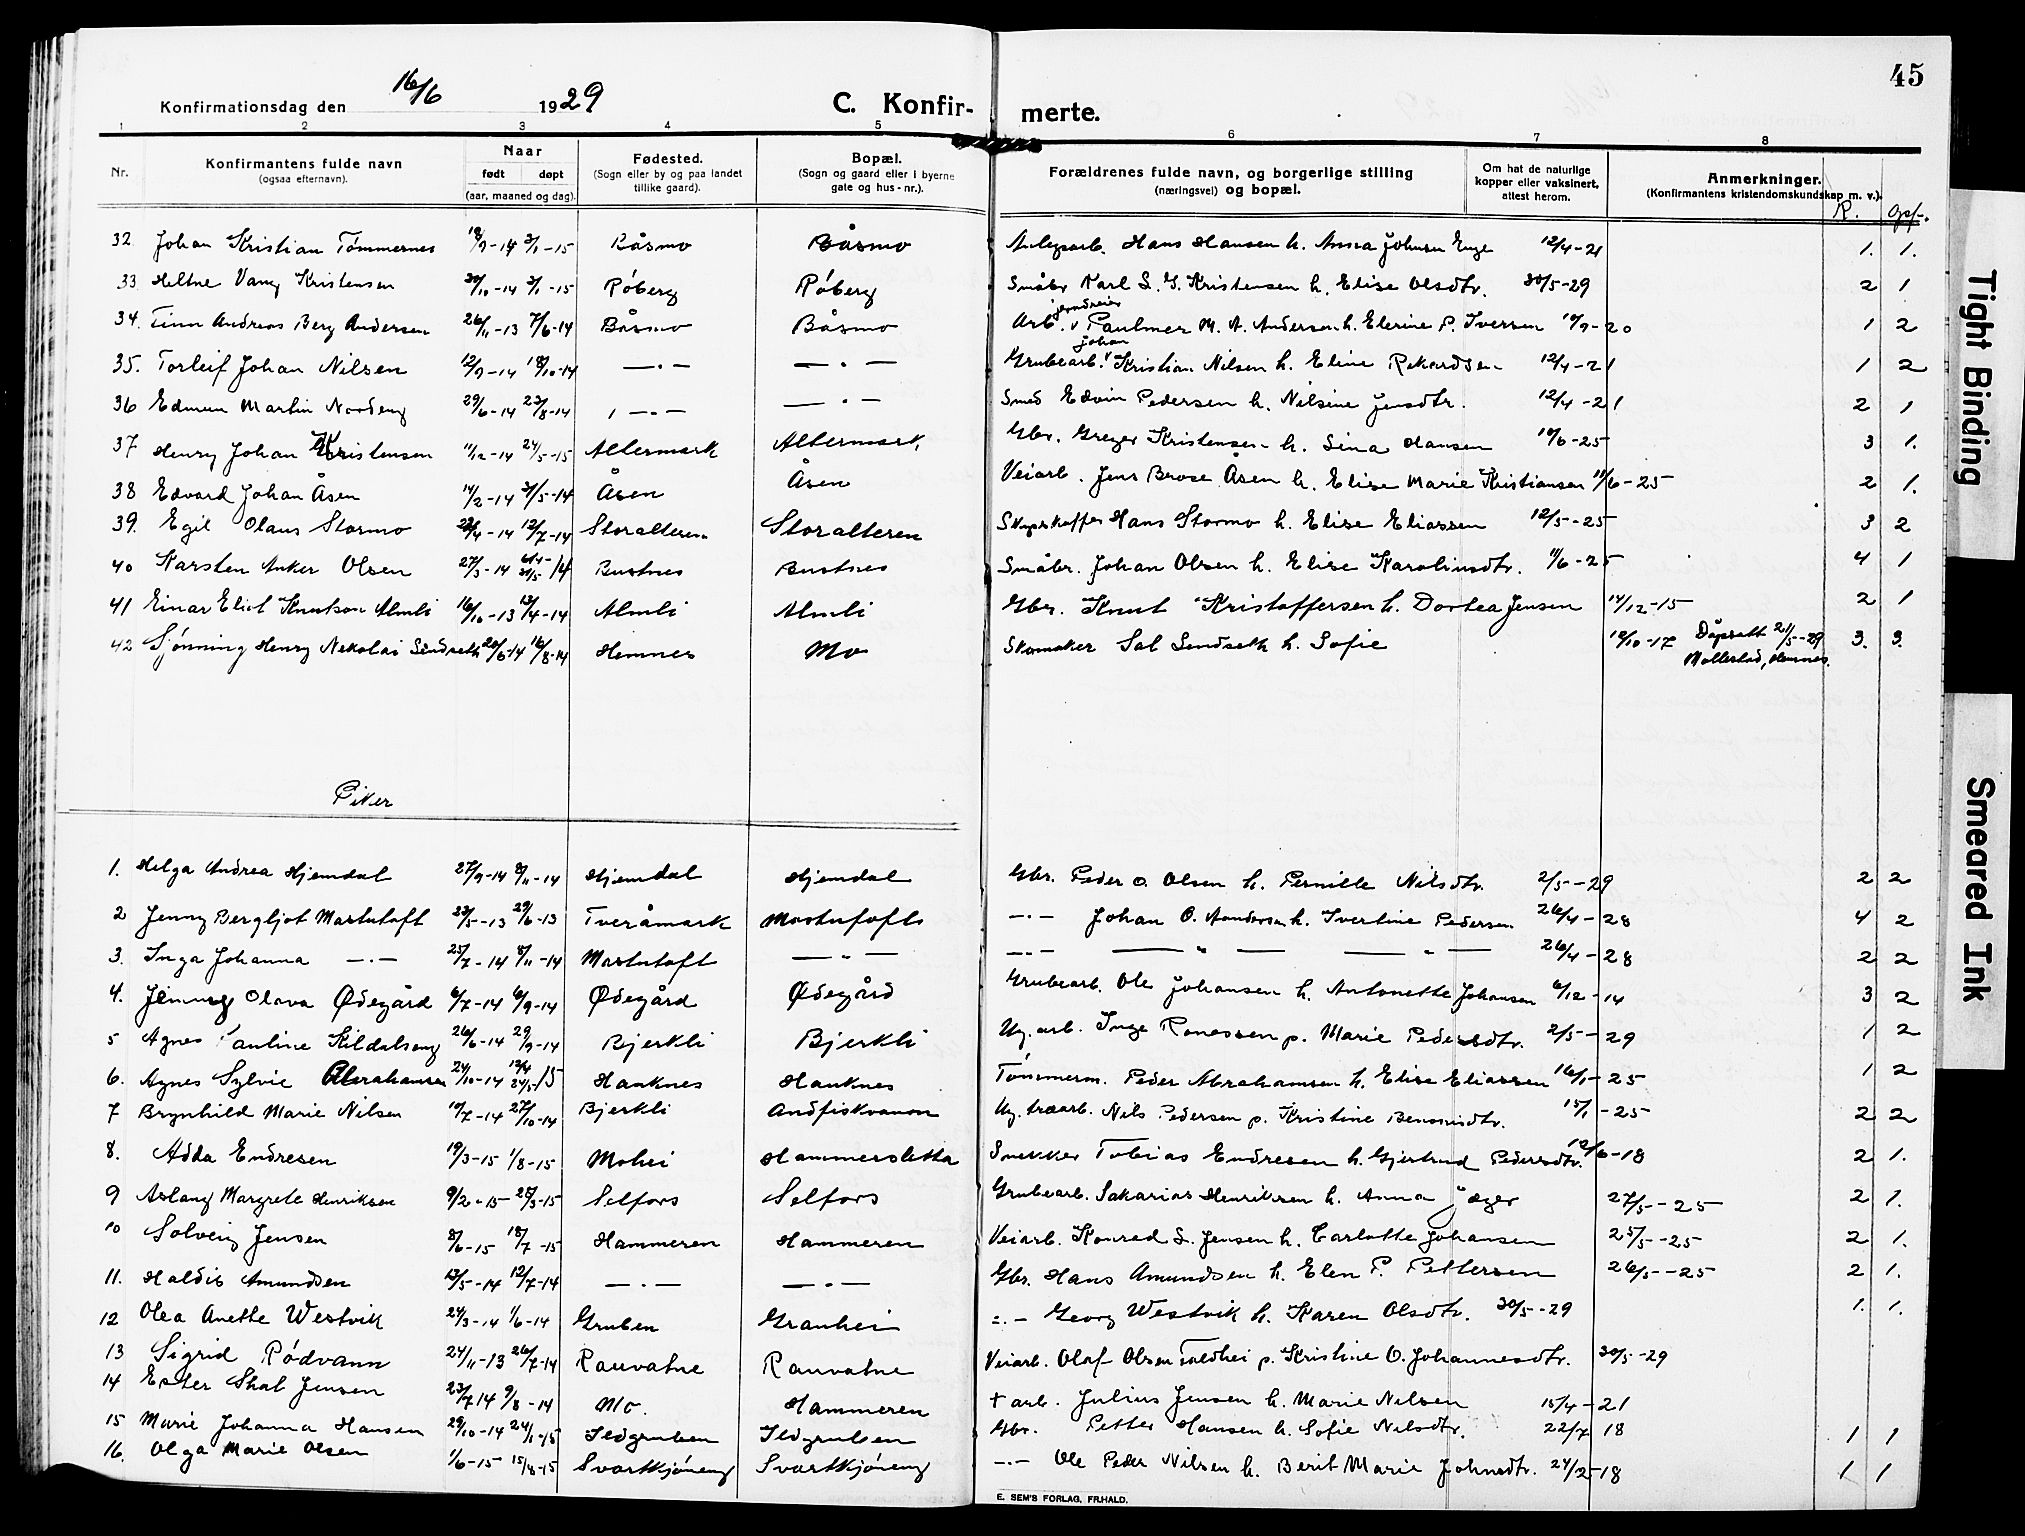 45
Konfirmationsdag den 16/6 1929 C. Konfirmerte.
1 2 3 4 5 6 7 8
Nr. Konfirmantens fulde navn (ogsaa efternavn). Naar født døpt (aar, maaned og dag). Fødested. (Sogn eller by og paa landet tillike gaard). Bopæl. (Sogn og gaard eller i byerne gate og hus-nr.). Forældrenes fulde navn, og borgerlige stilling (næringsvei) og bopæl. Om hat de naturlige kopper eller vaksinert, attest herom. Anmerkninger. (Konfirmantens kristendomskundskap m. v.). R.
32 Johan Kristian Tømmernes 18/9-14 3/1-15 Båsmo Båsmo Hans Hansen h. Anna Johnsen Enge 12/4-21 1. 1.
33 Heltne Vang Kristensen 30/10-14 3/1-15 Røberg Røberg Småbr Karl S. G. Kristensen h. Elise Olsdtr. 30/5-29 2 1
34. Finn Andreas Berg Andersen 26/11-13 7/6-14 Båsmo Båsmo Arb. Paulmer M. A. Andersen h. Elerine P. Iversen 10/9-20 1 2
35. Torleif Johan Nilsen 12/9-14 18/10-14 — · — — · — Grubearb. Johan Kristian Nilsen h. Eline Rikardsen 12/4-21 1 2
36 Edmun Martin Nordeng 29/6-14 23/8-14 — · — — · — Smed Edvin Pedersen h. Nilsine Jensdtr. 12/4-21 2 1
37 Henry Johan Kristensen 11/12-14 24/5-15 Altermark Altermark Gbr. Greger Kristensen h. Sina Hansen 10/6-25 3 1.
38 Edvard Johan Åsen 14/2-14 31/5-14 Åsen Åsen Veiarb. Jens Brose Åsen h. Elise Marie Kristiansen 11/6-25 2 1.
39. Egil Olaus Stormo 22/4-14 12/7-14 Storalteren Storalteren Hans Stormo h. Elise Eliassen 12/5-25 3 2
40 Karsten Anker Olsen 27/3-14 31/5-14 Bustnes Bustnes Småbr. Johan Olsen h. Elise Karolinsdtr. 11/6-25 4 1
41 Einar Eliot Knutson Almli 16/10-13 13/4-14 Almli Almli Gbr. Knut Kristoffersen h. Dortea Jensen 14/12-15 2 1
42 Sjønning Henry Nikolai Sendseth 20/6-14 16/8-14 Hemnes Mo Skomaker Sal Sendseth h. Sofie 12/10-17 Dåpsatt 21/5-29 Hemnes. 3. 3.
Piker
1. Helga Andrea Hjemdal 27/9-14 8/11-14 Hjemdal Hjemdal Gbr. Peder O. Olsen h. Pernille Nilsdtr. 2/5-29 2 2
2 Jenny Bergljot Mastutoft 23/5-13 29/6-13 Tveråmark Mastutoft — · — Johan O. Aandersen h. Ivertine Pedersen 26/4-28 4 2
3. Inga Johanna — · — 25/7-14 8/11-14 Mastutoft — " — — · — — " — — " — 26/4-28 2 2
4. Jenny Olava Ødegård 6/7-14 6/9-14 Ødegård Ødegård Grubearb. Ole Johansen h. Antonette Johansen 6/12-14 3 2
5 Agnes Pauline Kildalseng 26/6-14 29/9-14 Bjerkli Bjerkli Ug. arb. Inge Ranessen p. Marie Pedersdtr. 2/5-29 1 2
6. Agnes Sylvie Abrahamsen 24/10-14 24/5-15 Hauknes Hauknes Tømmerm. Peder Abrahamsen h. Elise Eliassen 16/1-25 1 2
7 Brynhild Marie Nilsen 10/7-14 27/10-14 Bjerkli Andfiskvannon Ug. træarb. Nils Pedersen p. Kristine Bensmidtr. 15/1-25 2 2
8. Adda Endresen 19/3-15 1/8-15 Mohei Hammersletta Snekker Tobias Endresen h. Gjertrud Pedersdtr. 12/6-18 2 1.
9 Aslaug Margrete Henriksen 9/2-15 25/3-15 Selfors Selfors Grubearb. Sakarias Henriksen h. Anna Jæger 27/5-25 2 1.
10 Solveig Jensen 8/6-15 18/7-15 Hammeren Hammeren Veiarb. Konrad S. Jensen h. Carlotte Johansen 25/5-25 2 1.
11. Haldis Amundsen 13/5-14 12/7-14 — · — — · — Gbr. Hans Amundsen h. Elen P. Pettersen 26/5-25 2 1.
12 Olea Anette Westvik 24/3-14 1/6-14 Gruben Granhei — · — Georg Westvik h. Karen Olsdtr. 30/5-29 1. 1.
13 Sigrid Rødvann 24/11-13 26/7-14 Rauvatne Rauvatne Veiarb. Olaf Olsen Foldhei p. Kristine O. Johannesdtr. 30/5-29
14 Ester Skat Jensen 23/7 14 9/8-14 Mo. Hammeren † arb. Julius Jensen h. Marie Nilsen 15/4-21
15 Marie Johanna Hansen 29/10-14 24/1-15 Ildgruben Ildgruben Gbr. Petter Hansen h. Sofie Nilsdtr. 22/7 18 1 1
16. Olga Marie Olsen 1/6-15 15/8-15 Svartkjøneng Svartkjøneng — · — Ole Peder Nilsen h. Berit Marie Johnsdtr. 24/2-18 1 1
E. SEM'S FORLAG, FR.HALD.
Tight Binding
Smeared Ink